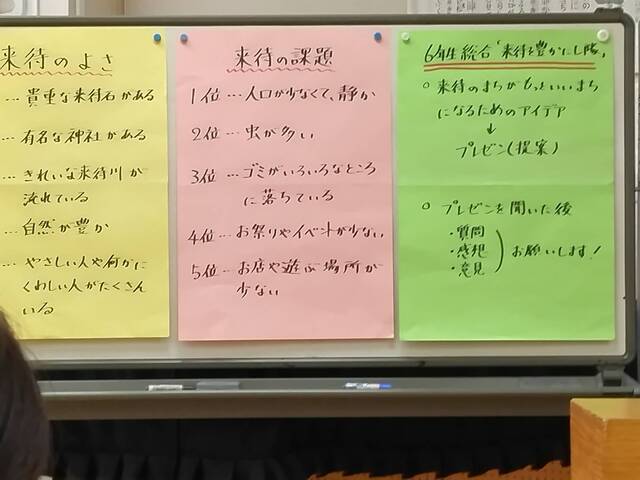 来待のよさ
… 貴重な来待石がある
… 有名な神社がある
… きれいな来待川が
流れている
… 自然が豊か
… やさしい人や何かに
くわしい人がたくさん
いる
来待の課題
1位 … 人口が少なくて、静か
2位 … 虫が多い
3位 … ゴミがいろいろなところ
に落ちている
4位 … お祭りやイベントが少ない
5位 … お店や遊ぶ場所が
少ない
6年生総合「来待を豊かにし隊」
○ 来待のまちがもっといいまち
になるためのアイデア
↓
プレゼン(提案)
○ プレゼンを聞いた後
・質問
・感想
・意見
お願いします!